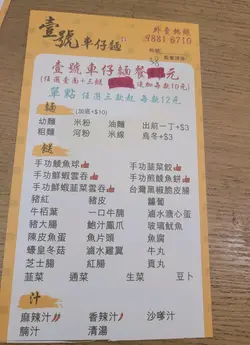 壹號車仔麵
外賣熱線
9881 6710
38
壹號車仔麵餐 元
(任選壹麵+三餸 送加款10元)
單點 任選三款起 每款12元
麵 (加底+$10)
幼麵 米粉 油麵 出前一丁+$3
粗麵 河粉 米線 烏冬+$3
餸
手功鯪魚球 手功韮菜餃
手功鮮蝦雲吞 手功煎鯪魚餅
手功鮮蝦韮菜雲吞 台灣黑椒脆皮腸
豬紅 豬皮 蘿蔔
牛栢葉 一口牛腩 滷水甜心蛋
豬大腸 鮑汁鳳爪 玻璃魷魚
陳皮魚蛋 魚片頭 墨丸
蠔皇冬菇 滷水雞翼 牛丸
芝士腸 紅腸 貢丸
韮菜 通菜 生菜 豆卜
汁
麻辣汁 香辣汁 沙嗲汁
腩汁 清湯